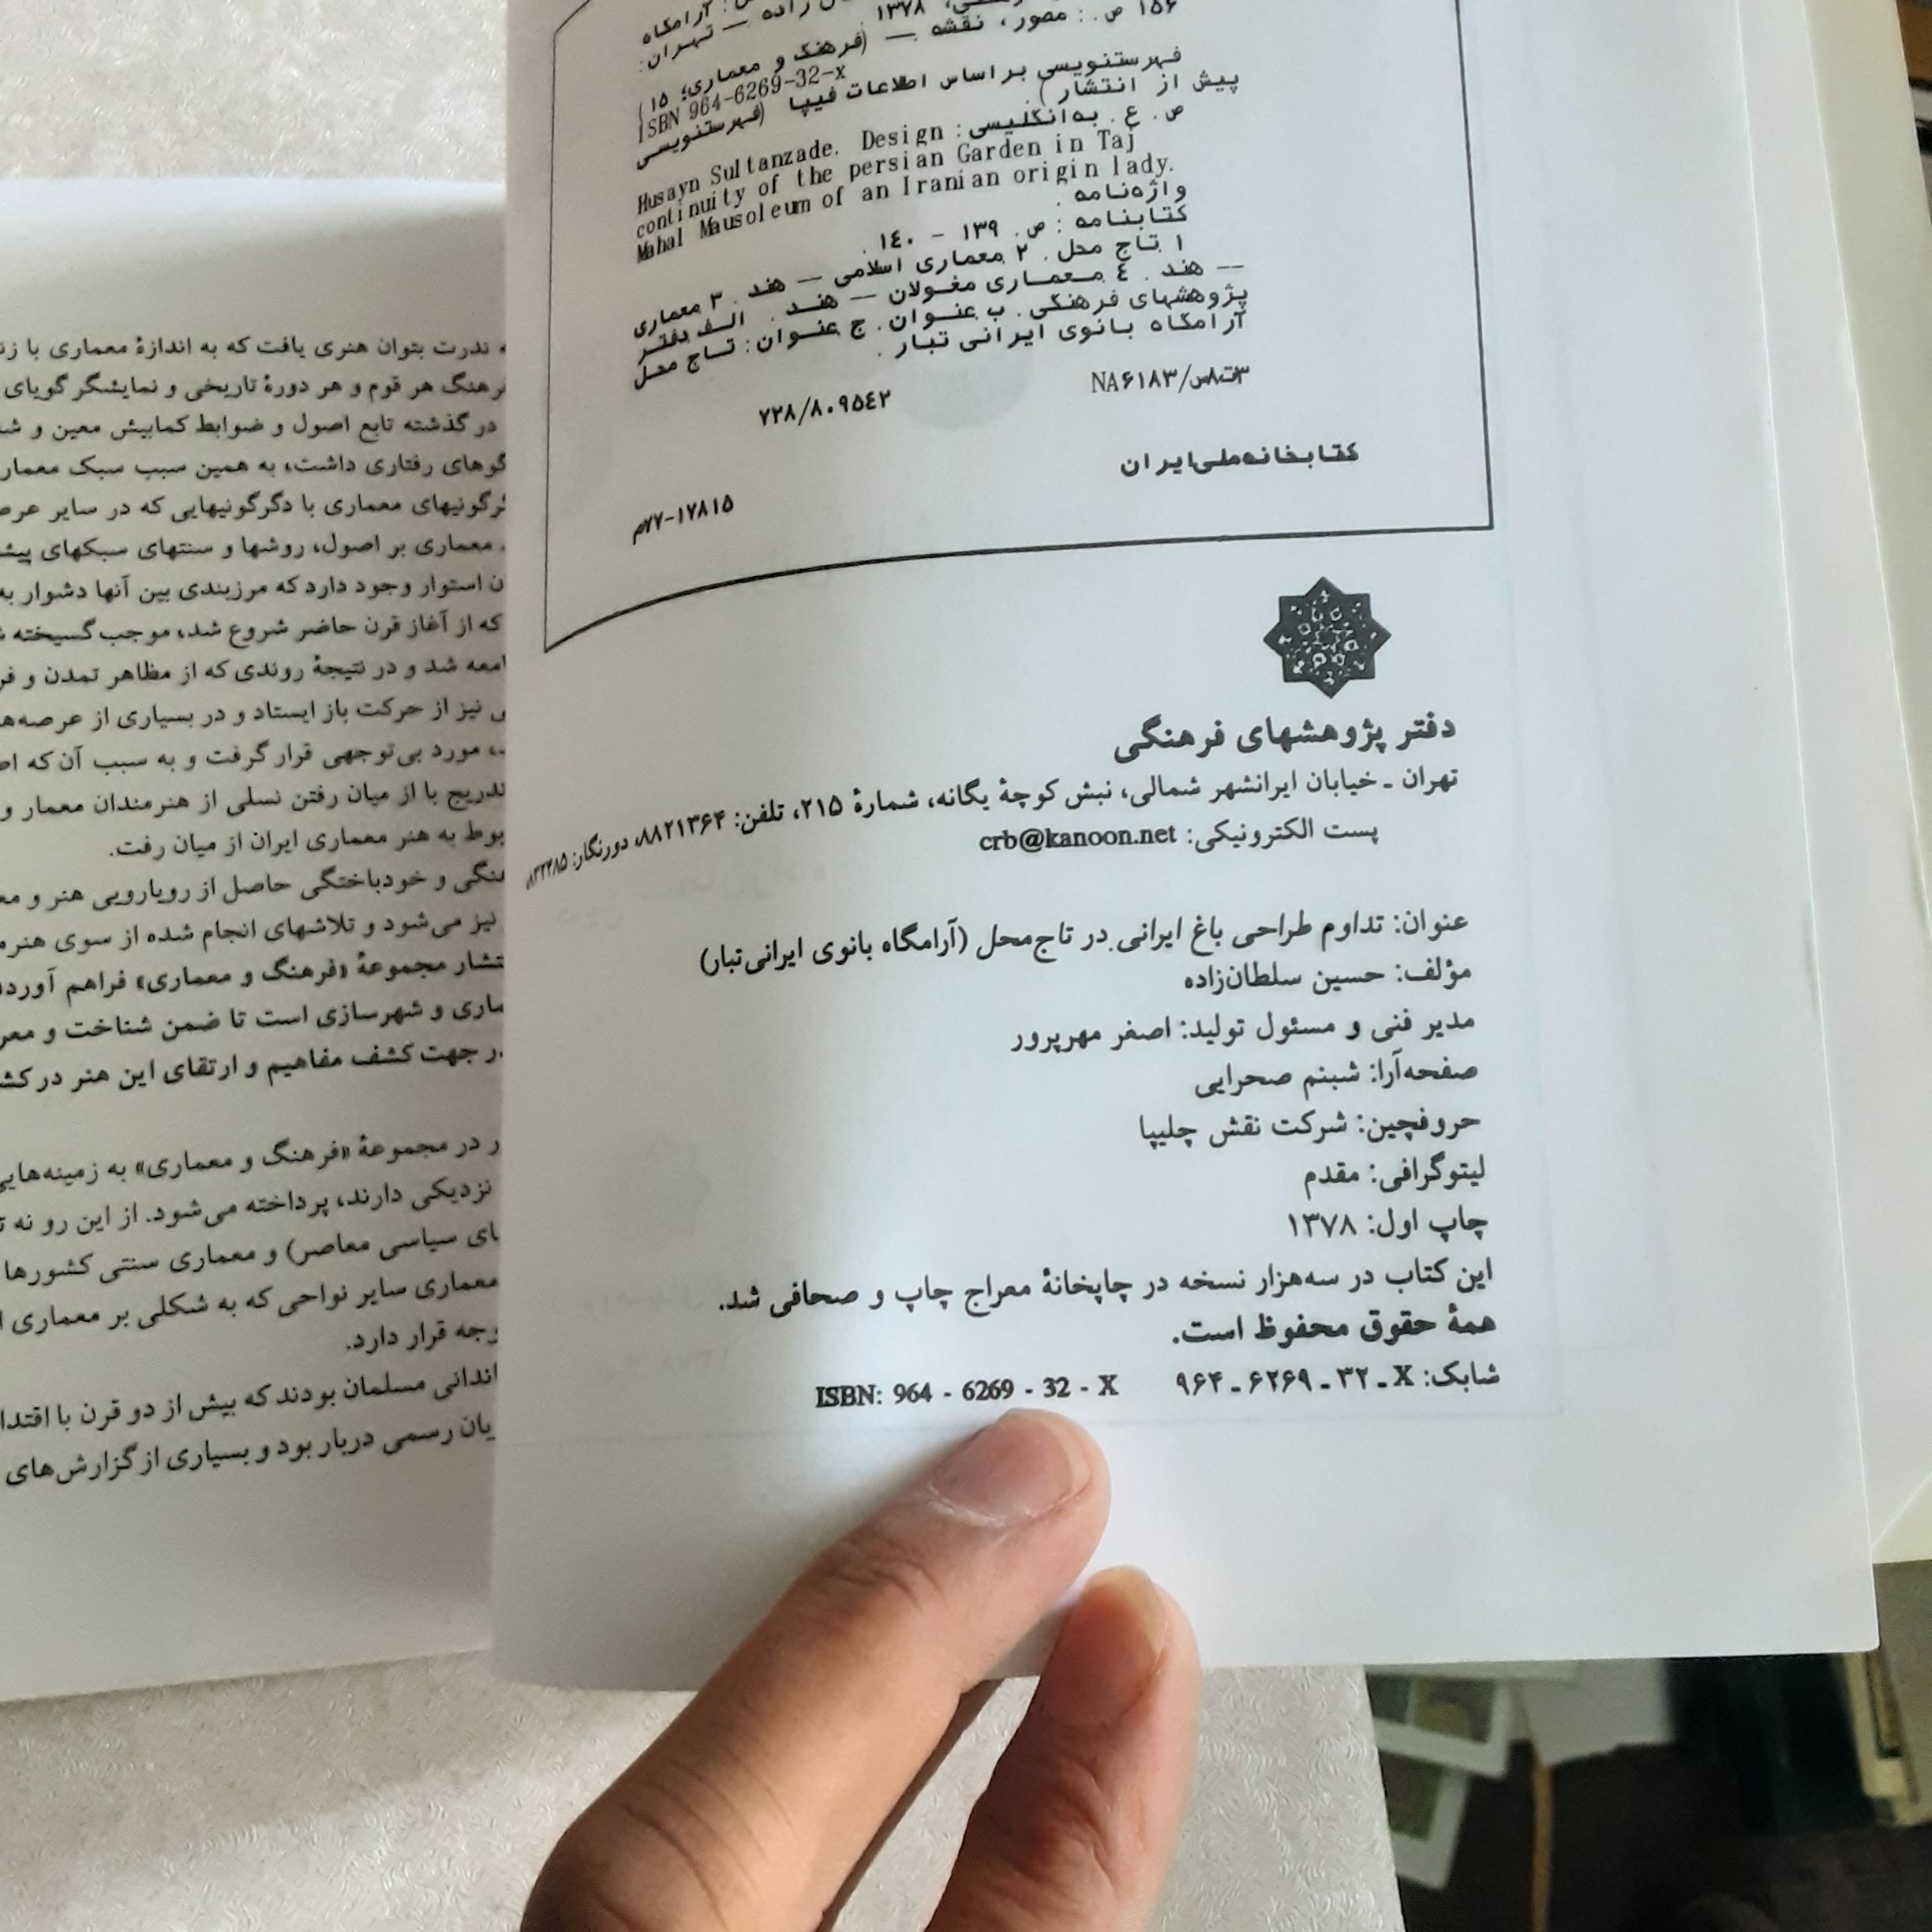 آرامگاه
زاده — تهران:
۱۳۷۸ .
۱۵۶ ص. : مصور، نقشه — (فرهنگ و معماری؛ ۱۵)
ISBN 964-6269-32-x
فهرستنویسی بر اساس اطلاعات فیپا (فهرستنویسی
پیش از انتشار) .
ص. ع. به‌انگلیسی: Husayn Sultanzade. Design
continuity of the persian Garden in Taj
Mahal Mausoleum of an Iranian origin lady.
واژه‌نامه .
کتابنامه : ص. ۱۳۹ - ۱٤۰ .
۱ تاج محل. ۲ معماری اسلامی — هند . ۳ معماری
— هند . ٤ معماری مغولان — هند . الف دفتر
پژوهشهای فرهنگی. ب عنوان. ج عنوان: تاج محل
آرامگاه بانوی ایرانی تبار .
۳ت۸س/NA۶۱۸۳
۷۲۸/۸۰۹۵٤۲
کتابخانه‌ملی‌ایران
۱۷۸۱۵-۷۷م
دفتر پژوهشهای فرهنگی
تهران ـ خیابان ایرانشهر شمالی، نبش کوچهٔ یگانه، شمارهٔ ۲۱۵، تلفن: ۸۸۲۱۳۶۴، دورنگار:
پست الکترونیکی: crb@kanoon.net
عنوان: تداوم طراحی باغ ایرانی در تاج‌محل (آرامگاه بانوی ایرانی‌تبار)
مؤلف: حسین سلطان‌زاده
مدیر فنی و مسئول تولید: اصغر مهرپرور
صفحه‌آرا: شبنم صحرایی
حروفچین: شرکت نقش چلیپا
لیتوگرافی: مقدم
چاپ اول: ۱۳۷۸
این کتاب در سه‌هزار نسخه در چاپخانهٔ معراج چاپ و صحافی شد.
همهٔ حقوق محفوظ است.
شابک: X ـ ۳۲ ـ ۶۲۶۹ ـ ۹۶۴ ISBN: 964 - 6269 - 32 - X
ندرت بتوان هنری یافت که به اندازهٔ معماری با
فرهنگ هر قوم و هر دورهٔ تاریخی و نمایشگر گویای
در گذشته تابع اصول و ضوابط کمابیش معین و
رفتاری داشت، به همین سبب سبک
معماری با دگرگونیهایی که در سایر
معماری بر اصول، روشها و سنتهای سبکهای
استوار وجود دارد که مرزبندی بین آنها دشوار
که از آغاز قرن حاضر شروع شد، موجب گسیخته
شد و در نتیجهٔ روندی که از مظاهر تمدن و
نیز از حرکت باز ایستاد و در بسیاری از
مورد بی‌توجهی قرار گرفت و به سبب آن که
با از میان رفتن نسلی از هنرمندان معمار و
به هنر معماری ایران از میان رفت.
و خودباختگی حاصل از رویارویی هنر و
نیز می‌شود و تلاشهای انجام شده از سوی
مجموعهٔ «فرهنگ و معماری» فراهم
و شهرسازی است تا ضمن شناخت و
جهت کشف مفاهیم و ارتقای این هنر در
در مجموعهٔ «فرهنگ و معماری» به
نزدیکی دارند، پرداخته می‌شود. از این رو نه
سیاسی معاصر) و معماری سنتی کشورها
معماری سایر نواحی که به شکلی بر معماری
قرار دارد.
مسلمان بودند که بیش از دو قرن با
رسمی دربار بود و بسیاری از گزارش‌های